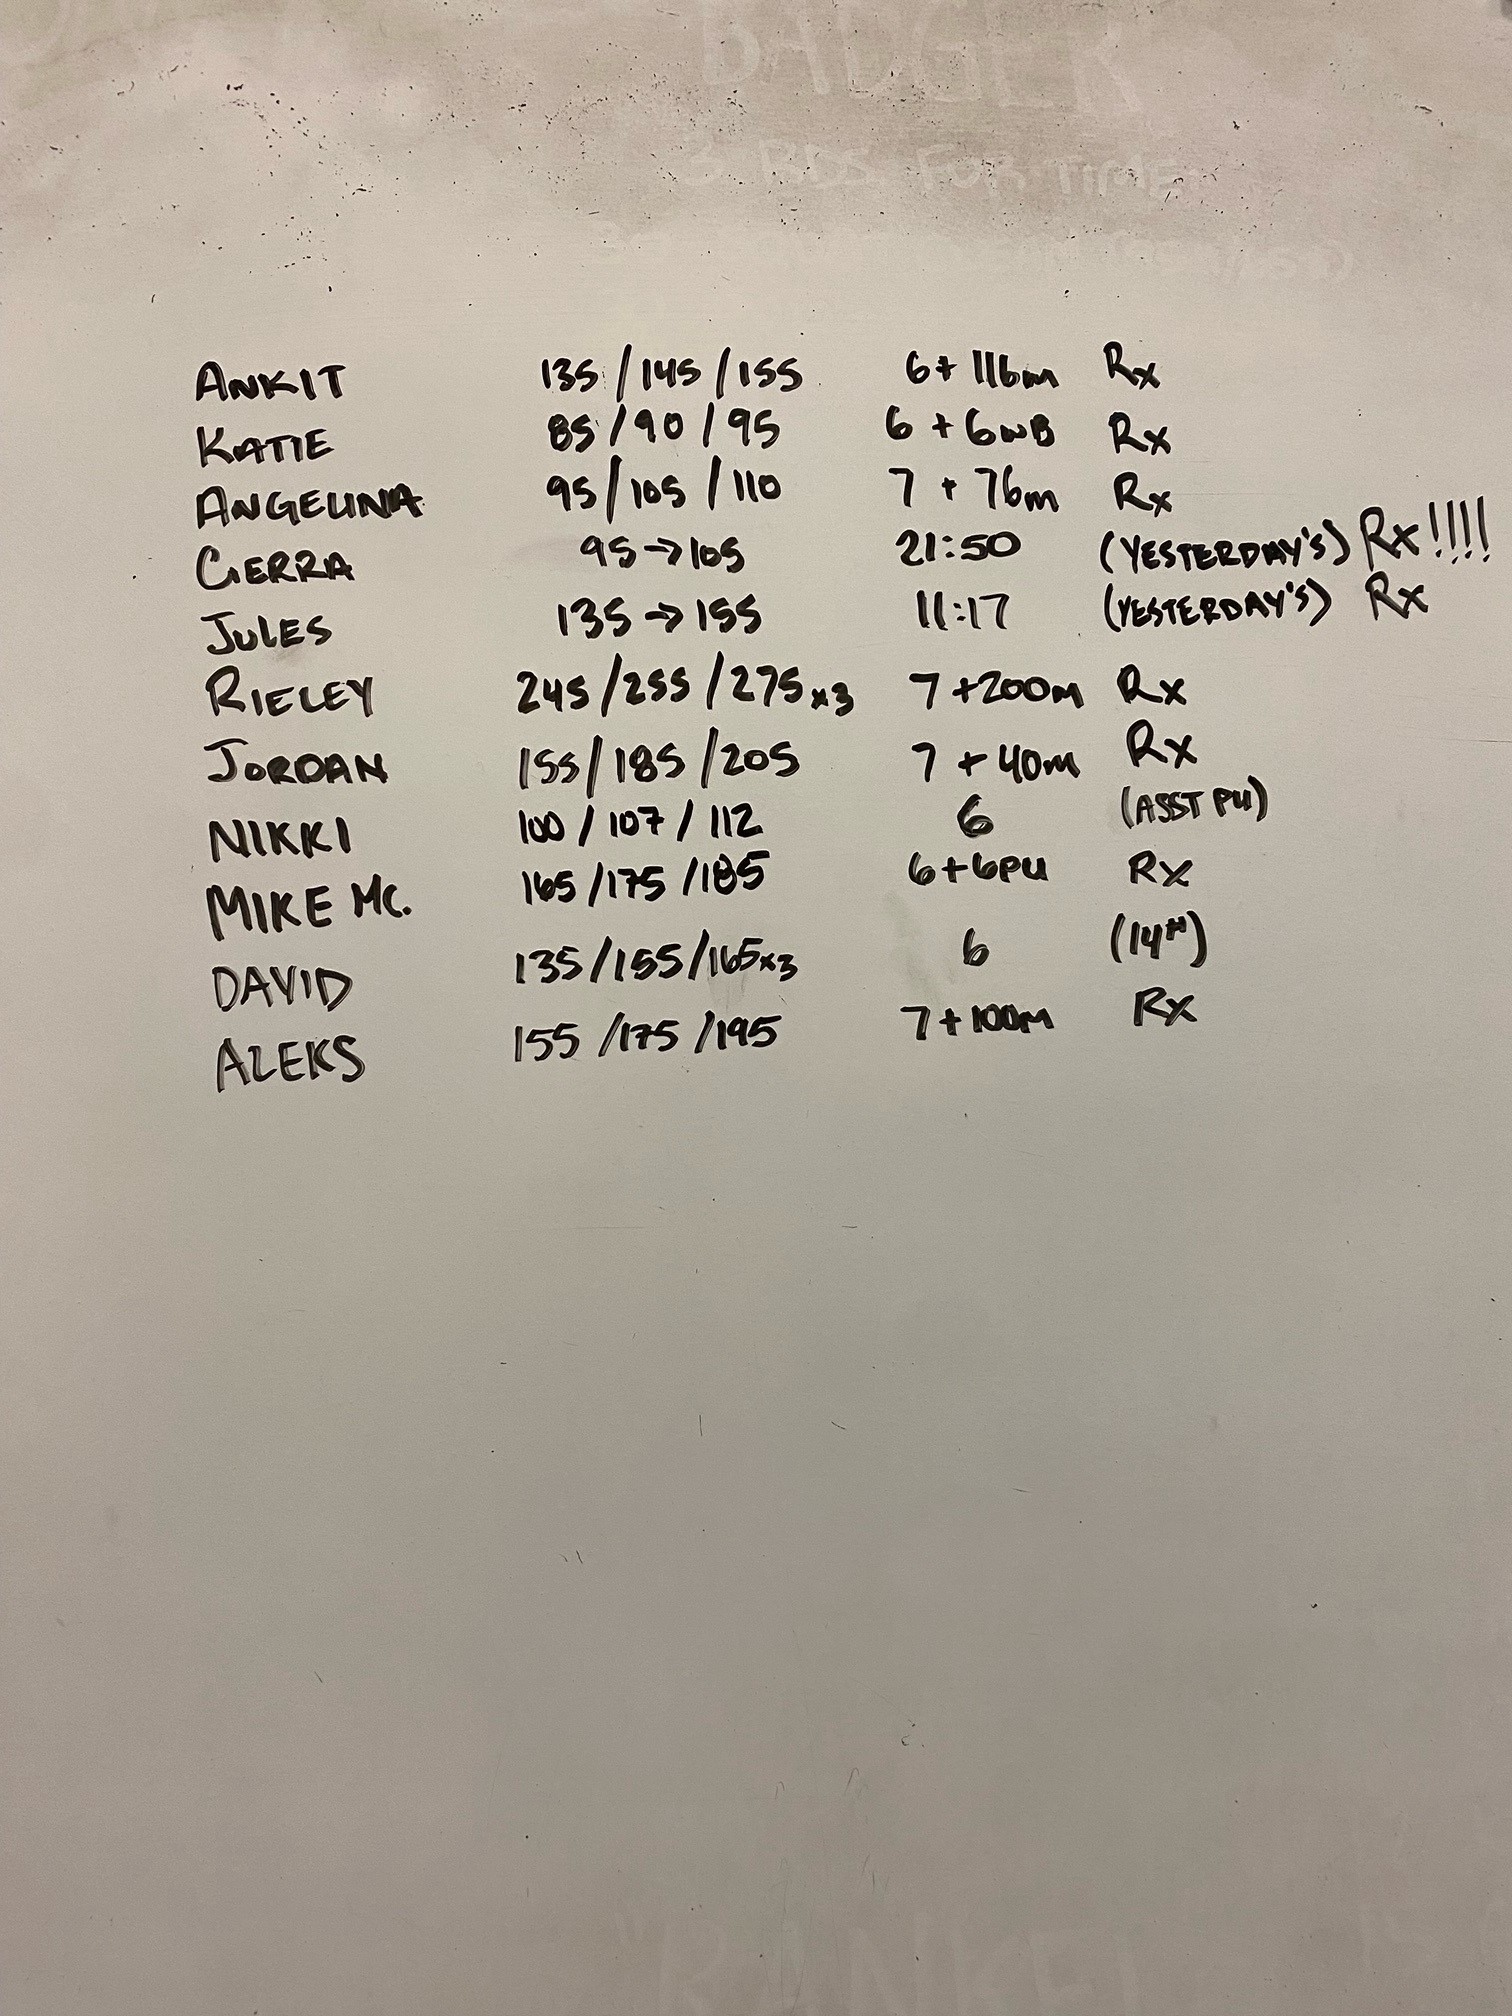 BADGER
3 RDS FOR TIME
ANKIT 135/145/155 6+116m Rx
KATIE 85/90/95 6+6WB Rx
ANGELINA 95/105/110 7+76m Rx
CIERRA 95→105 21:50 (YESTERDAY'S) Rx!!!!
JULES 135→155 11:17 (YESTERDAY'S) Rx
RIELEY 245/255/275x3 7+200m Rx
JORDAN 155/185/205 7+40m Rx
NIKKI 100/107/112 6 (ASST PU)
MIKE MC. 165/175/185 6+6PU Rx
DAVID 135/155/165x3 6 (14#)
ALEKS 155/175/195 7+100m Rx